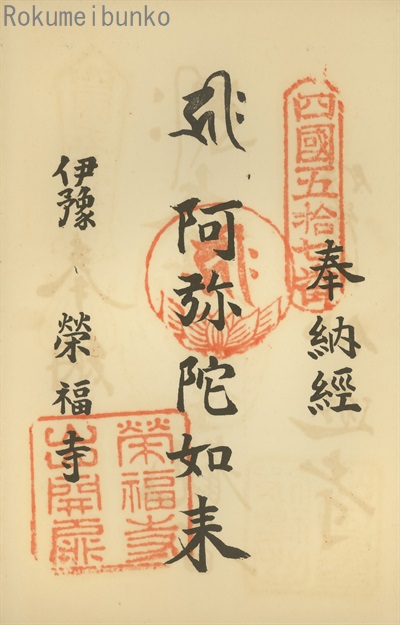 Rokumeibunko
四國五拾七番
奉納經
阿弥陀如来
伊豫 榮福寺
榮福寺